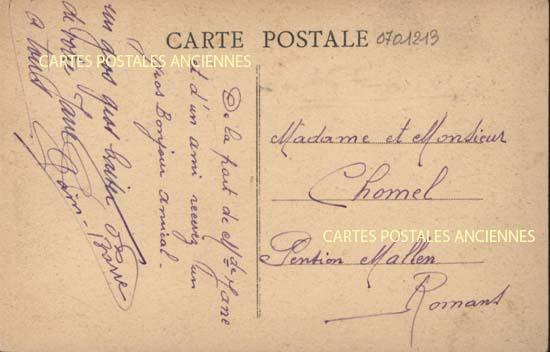 CARTE POSTALE
0701213
CARTES POSTALES ANCIENNES
Madame et Monsieur
Chomel
CARTES POSTALES ANCIENNES
Pention Mallen
Romans
De la part de Mde Jane
et d'un ami recevez un
gros Bonjour amical-
un gros gros baiser
de votre Jane
a tous